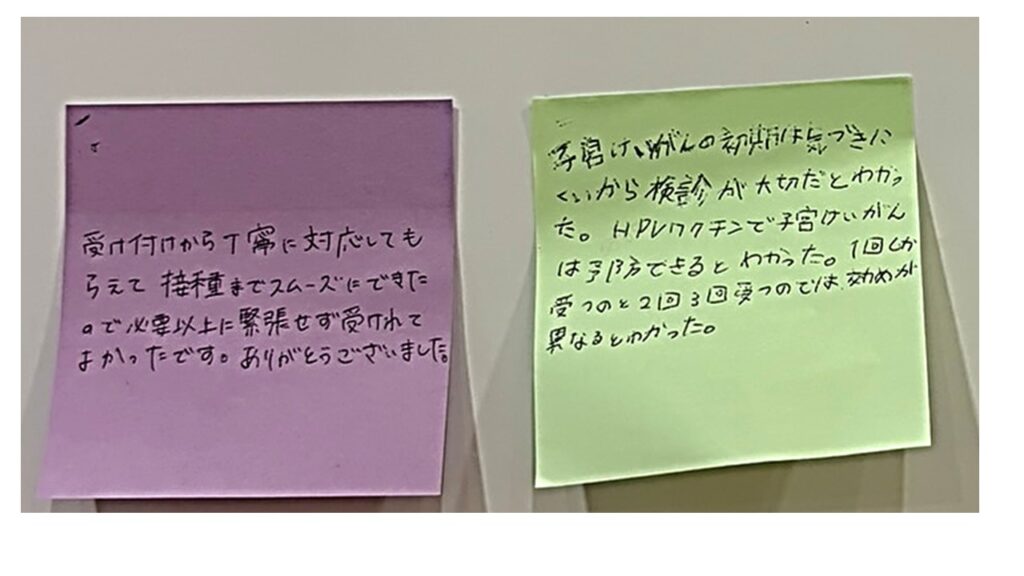 受け付けから丁寧に対応しても
らえて接種までスムーズにできた
ので必要以上に緊張せず受けれて
よかったです。ありがとうございました。
子宮けいがんの初期は気づきに
くいから検診が大切だとわかっ
た。HPVワクチンで子宮けいがん
は予防できるとわかった。1回しか
受つのと2回3回受つのでは効めが
異なるとわかった。